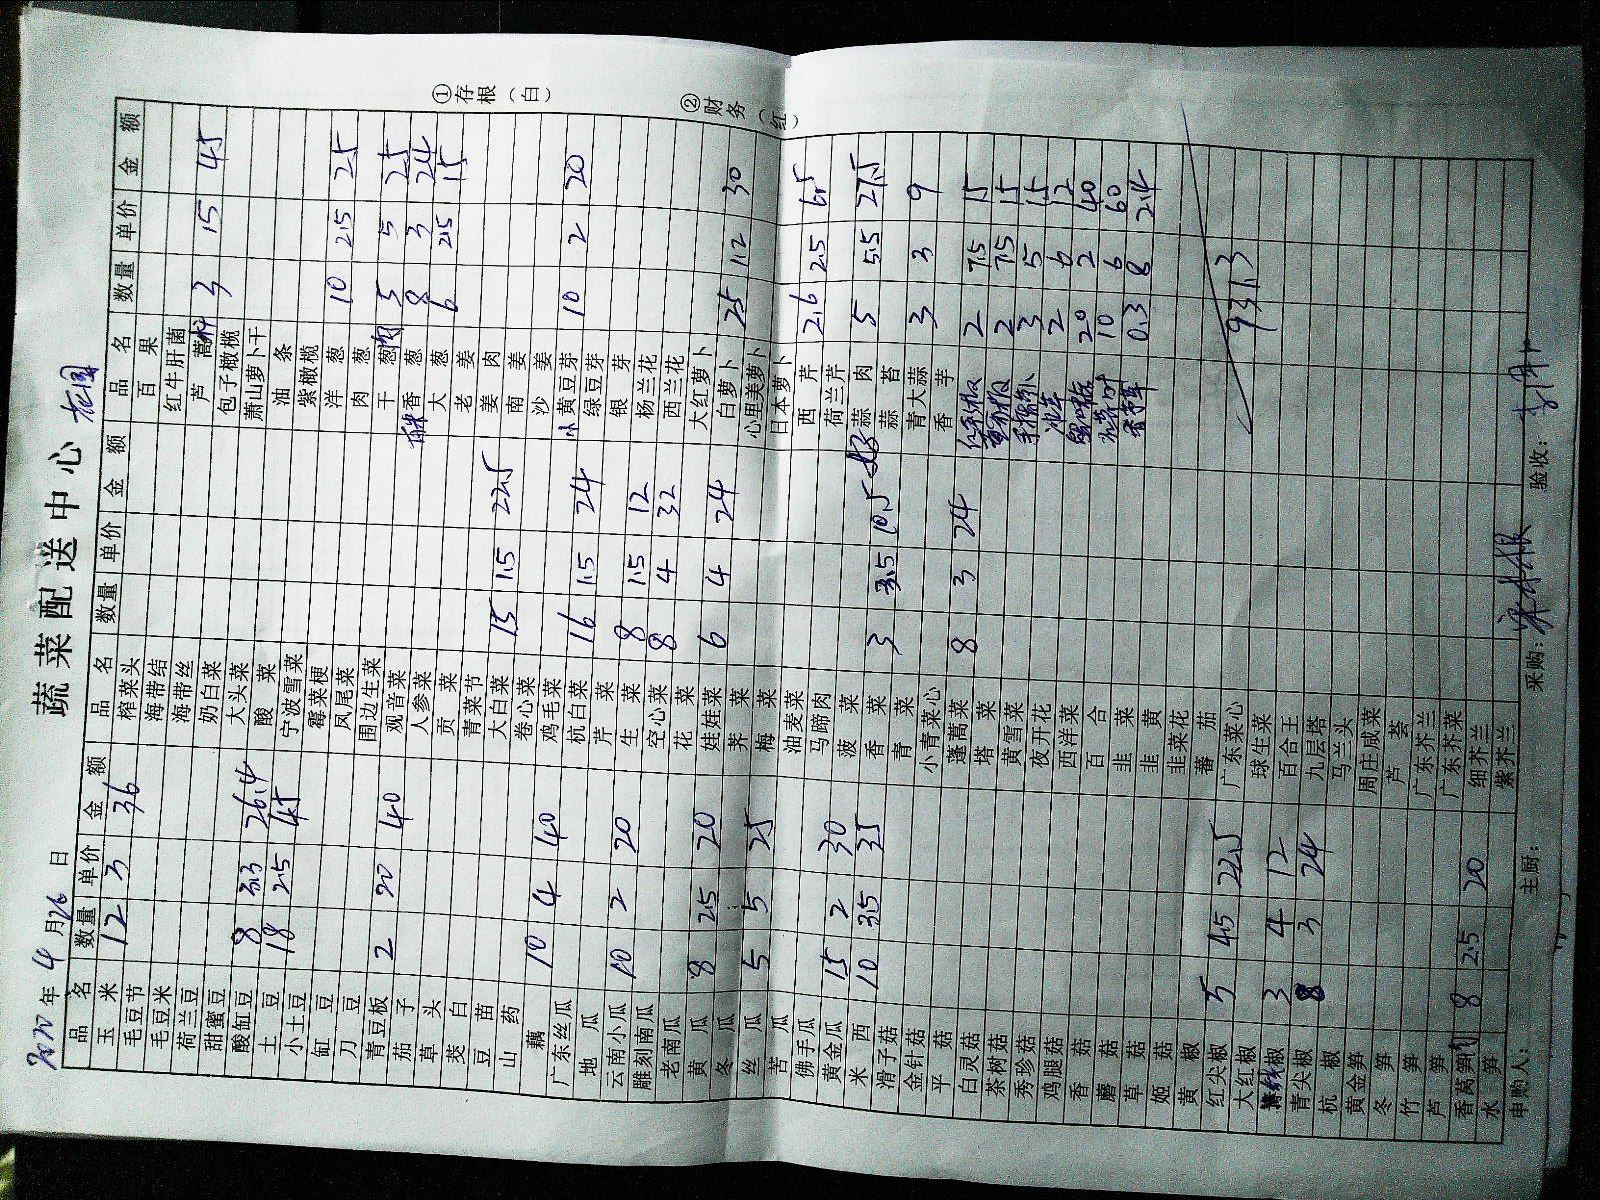 蔬菜配送中心 花园
2020年4月26日
品名 数量 单价 金额 品名 数量 单价 金额 品名 数量 单价 金额
玉米 12 3 36 榨菜头 百果
毛豆节 海带结 红牛肝菌
毛豆米 海带丝 芦蒿杆 3 15 45
荷兰豆 奶白菜 包子橄榄
甜蜜豆 大头菜 萧山萝卜干
酸缸豆 8 3.3 26.4 酸菜 油条
土豆 18 2.5 45 宁波雪菜 紫橄榄
小土豆 霉菜梗 洋葱 10 2.5 25
缸豆 凤尾菜 肉葱
刀豆 围边生菜 干葱肉 5 5 25
青豆板 2 20 40 观音菜 香葱 8 3 24
茄子 人参菜 大葱 6 2.5 15
草头 贡菜 老姜
茭白 青菜节 姜肉
豆苗 大白菜 15 1.5 22.5 南姜
山药 卷心菜 沙姜
藕 10 4 40 鸡毛菜 小黄豆芽 10 2 20
广东丝瓜 杭白菜 16 1.5 24 绿豆芽
地瓜 芹菜 银芽
云南小瓜 10 2 20 生菜 8 1.5 12 杨兰花
雕刻南瓜 空心菜 8 4 32 西兰花
老南瓜 花菜 大红萝卜
黄瓜 8 2.5 20 娃娃菜 6 4 24 白萝卜 25 1.2 30
冬瓜 荠菜 心里美萝卜
丝瓜 5 5 25 梅菜 日本萝卜
苦瓜 油麦菜 西芹 2.6 2.5 6.5
佛手瓜 马蹄肉 荷兰芹
黄金瓜 15 2 30 菠菜 蒜肉 5 5.5 27.5
米西 10 3.5 35 香菜 3 3.5 10.5 蒜苔
滑子菇 青菜 青大蒜 3 3 9
金针菇 小青菜心 香芋
平菇 蓬蒿菜 8 3 24 红彩椒 2 7.5 15
白灵菇 塔菜 黄彩椒 2 7.5 15
茶树菇 黄雪菜 3 5 15
秀珍菇 夜开花 冰草 2 6 12
鸡腿菇 西洋菜 20 2 40
香菇 百合 10 6 60
蘑菇 韭菜 香茅草 0.3 8 2.4
草菇 韭黄
姬菇 韭菜花
黄椒 蕃茄
红尖椒 5 4.5 22.5 广东菜心 931.3
大红椒 球生菜
椒 3 4 12 百合王
青尖椒 8 3 24 九层塔
杭椒 马兰头
黄金笋 周庄咸菜
冬笋 芦荟
竹笋 广东芥兰
芦笋 广东芥菜
香莴笋 8 2.5 20 细芥兰
水笋 紫芥兰
申购人： 主厨： 采购： 验收：
①存根（白）
②财务（红）